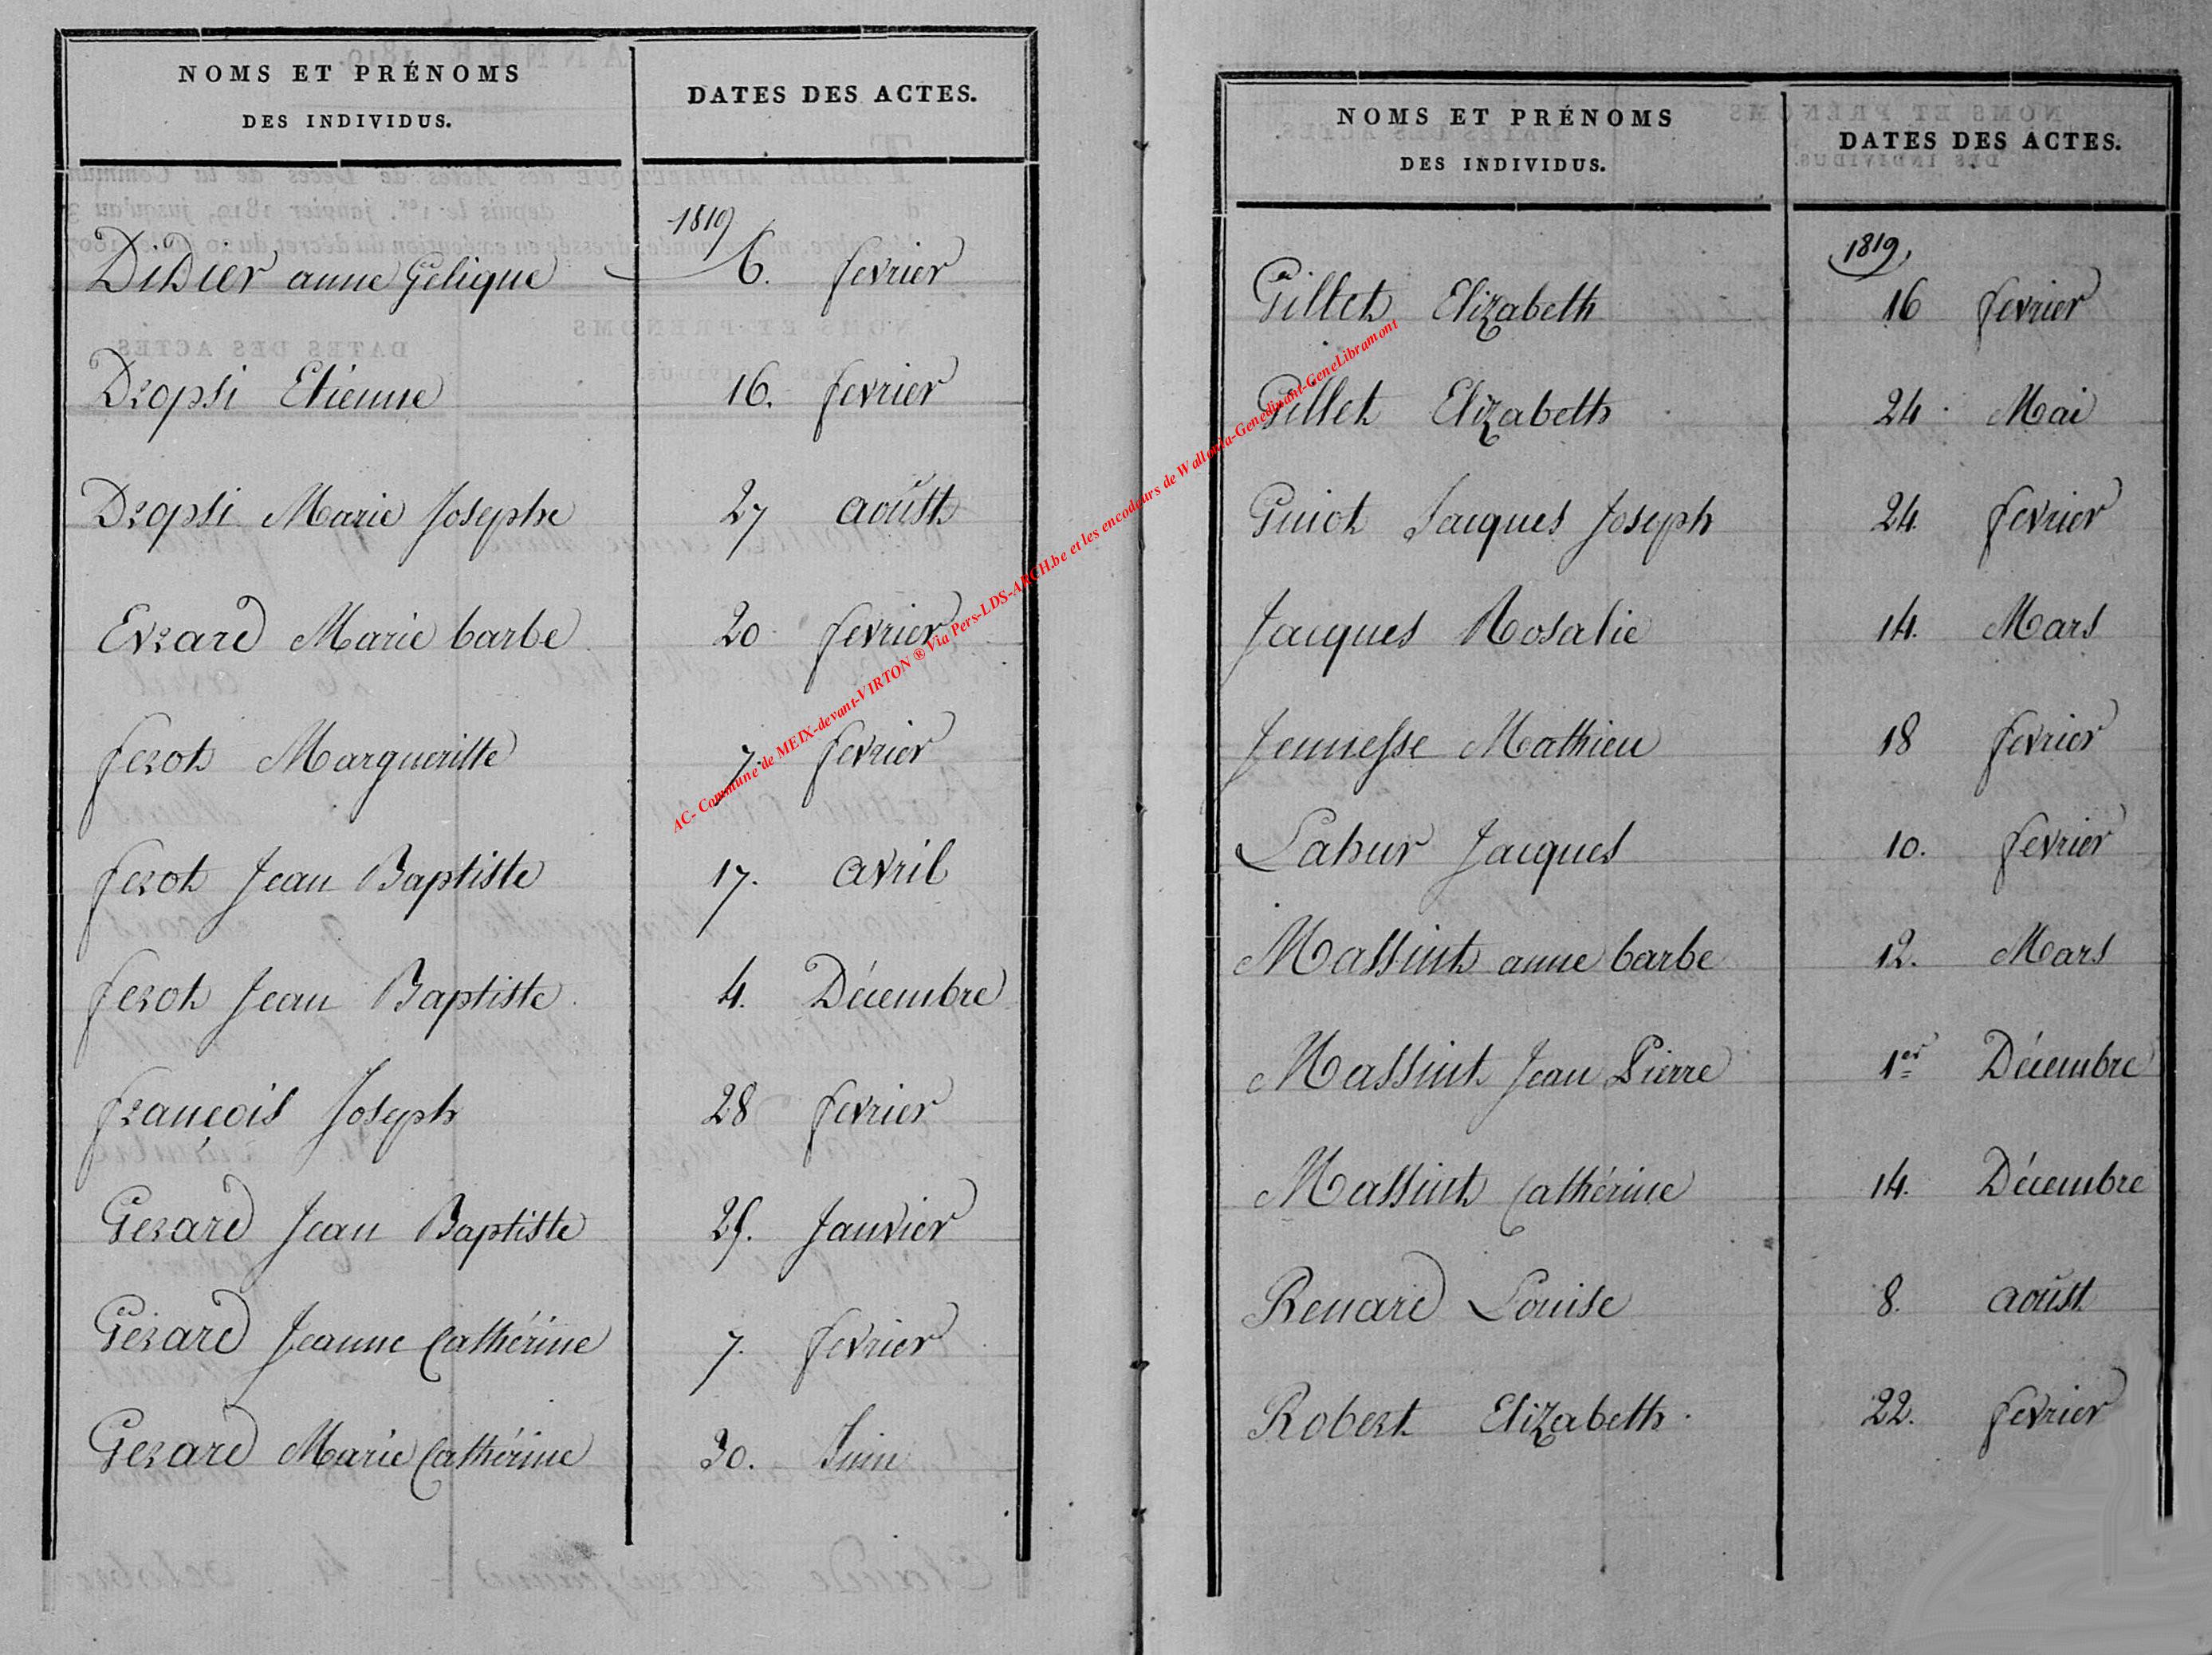 NOMS ET PRÉNOMS
DES INDIVIDUS.
DATES DES ACTES.
1819
Didier anne Gelique 6. fevrier
Dropsi Etienne 16. fevrier
Dropsi Marie Josephe 27 aoust
Evrard Marie barbe 20 fevrier
ferot Margueritte 7. fevrier
ferot Jean Baptiste 17. avril
ferot Jean Baptiste 4. Décembre
françois Joseph 28 fevrier
Gerard Jean Baptiste 25. Janvier
Gérard Jeanne Cathérine 7. fevrier
Gerard Marie Cathérine 30. Juin
NOMS ET PRÉNOMS
DES INDIVIDUS.
DATES DES ACTES.
1819
Gillet Elizabeth 16 fevrier
Gillet Elizabeth 24 Mai
Guiot Jacques Joseph 24 fevrier
Jacques Rosalie 14. Mars
Jennesse Mathieu 18 fevrier
Lahur Jacques 10. fevrier
Massint anne barbe 12. Mars
Massint Jean Pierre 1er Décembre
Massint Cathérine 14. Décembre
Renard Louise 8. aoust
Robert Elizabeth 22. fevrier
AC- Commune de MEIX-devant-VIRTON ® Via Pers-LDS-ARCH.be et les encodeurs de Wallonia-Genedinant-GeneLibramont